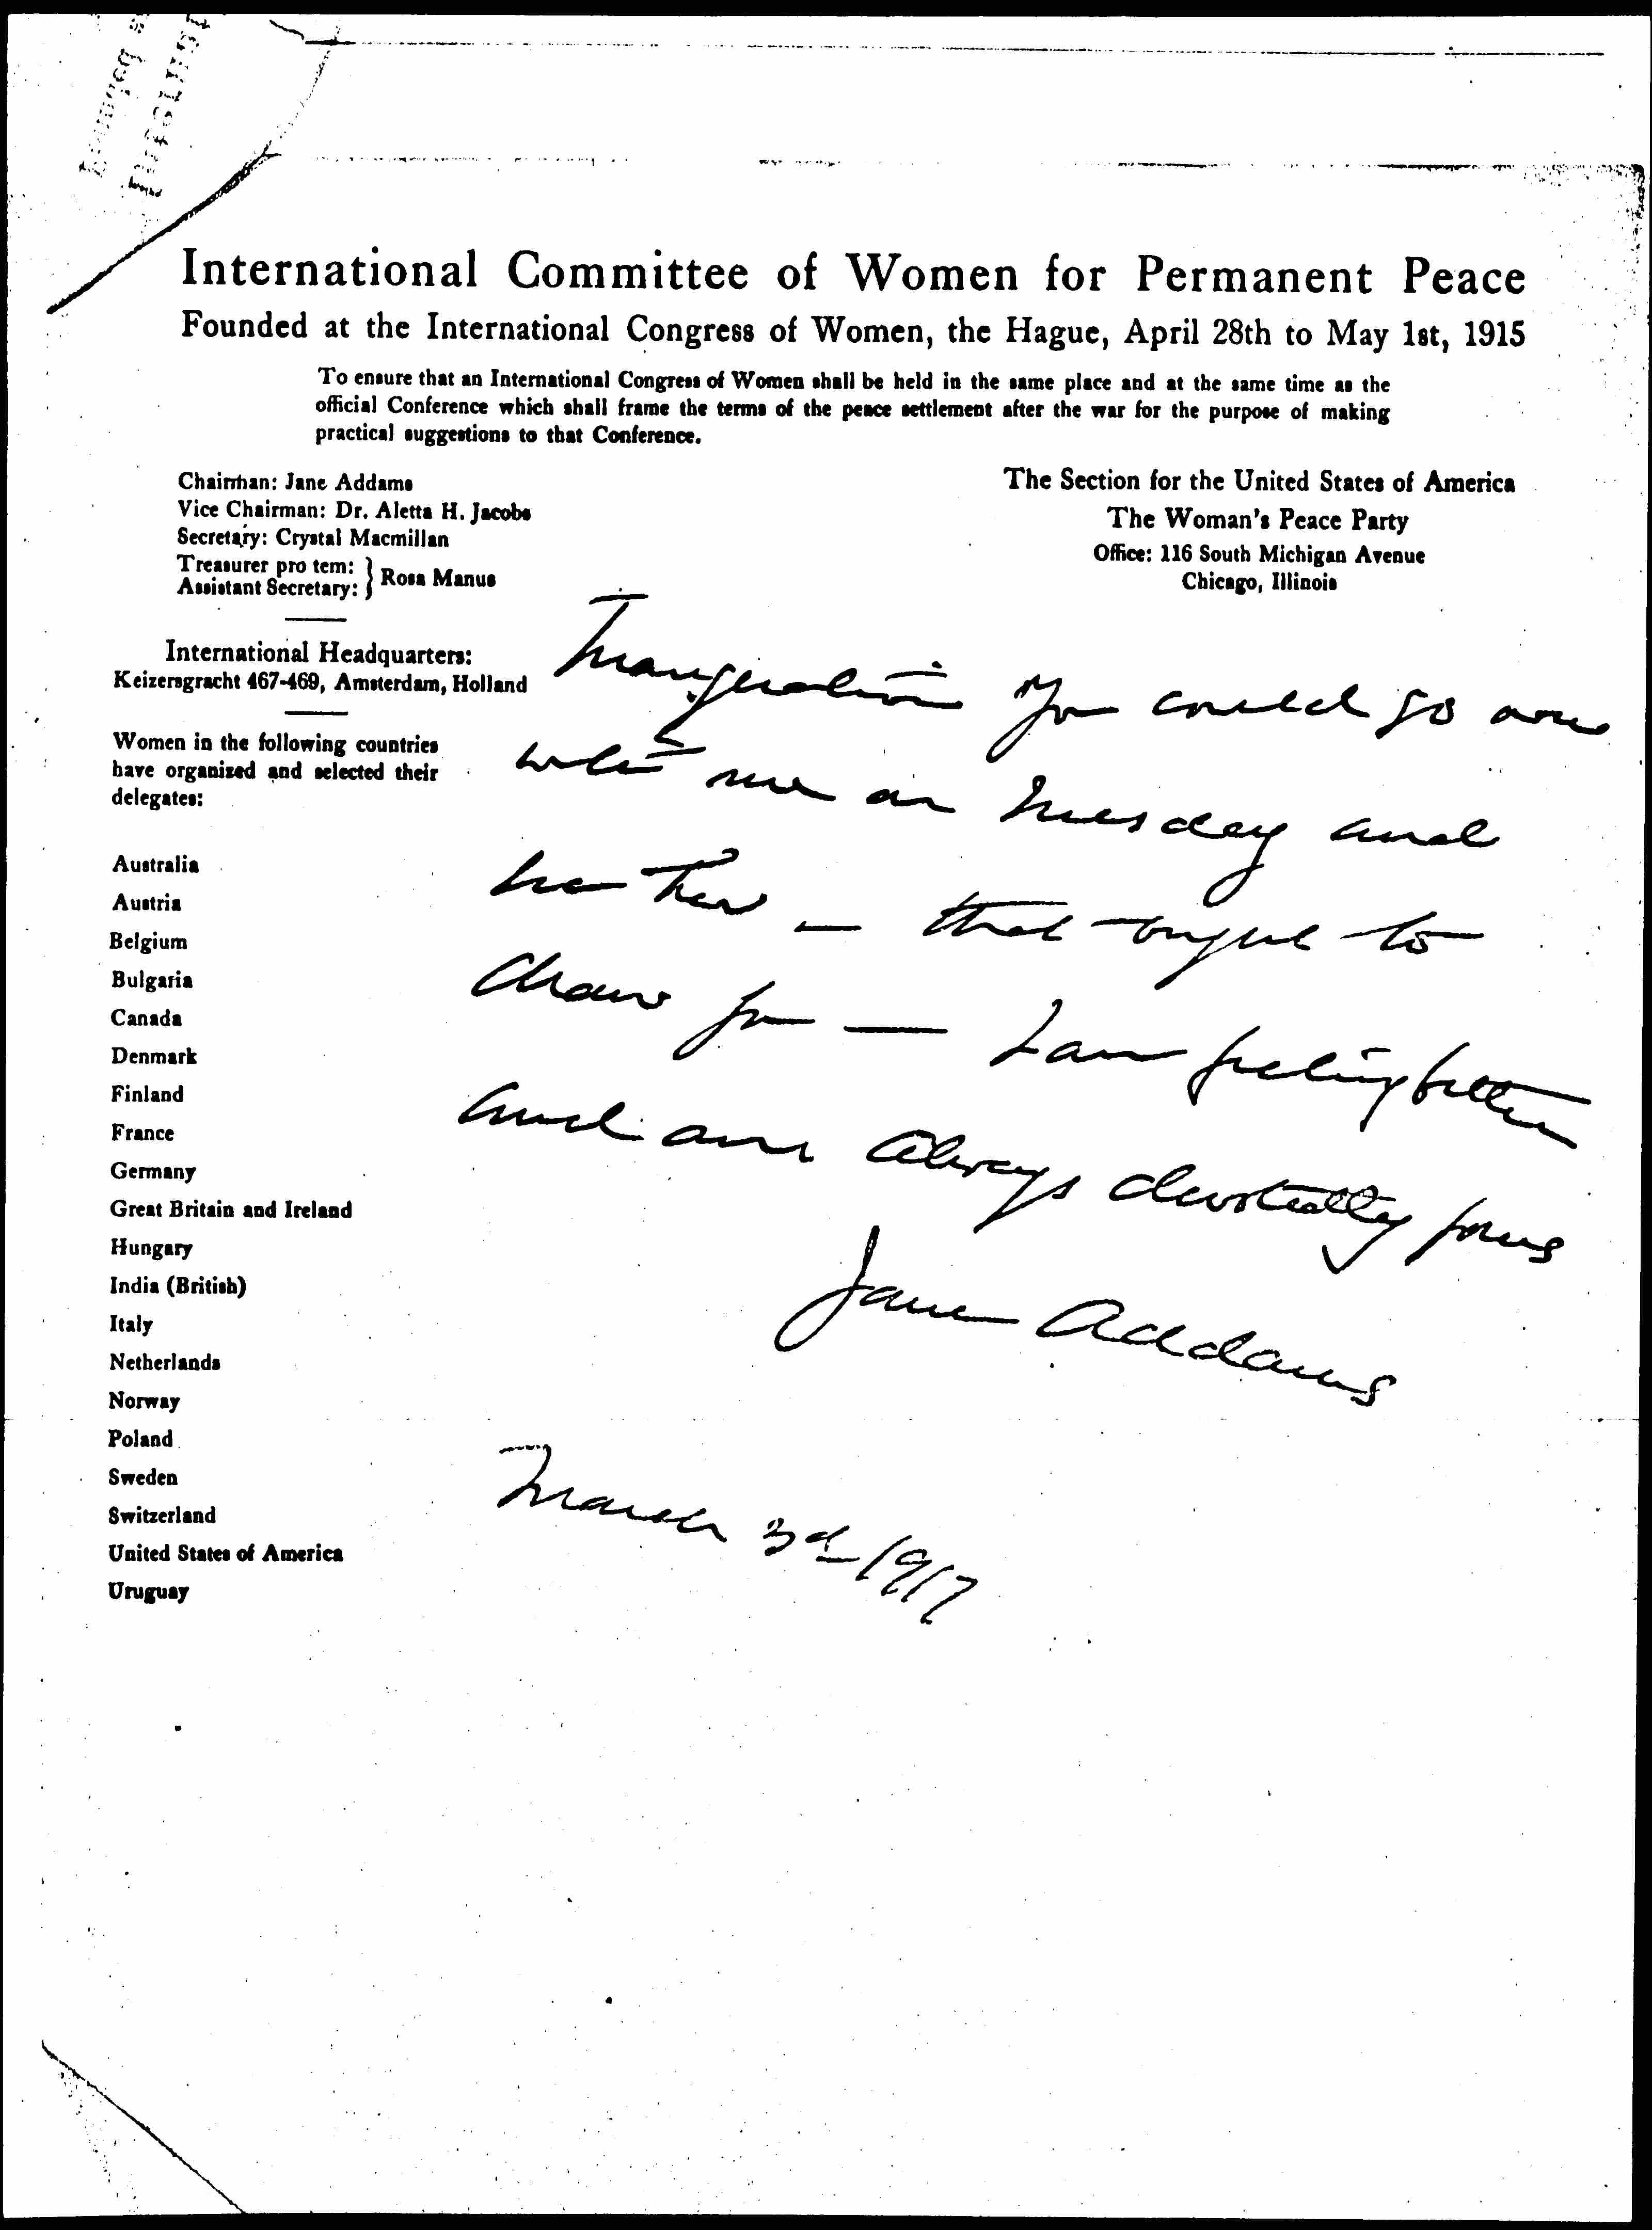 International Committee of Women for Permanent Peace
Founded at the International Congress of Women, the Hague, April 28th to May 1st, 1915
To ensure that an International Congress of Women shall be held in the same place and at the same time as the
official Conference which shall frame the terms of the peace settlement after the war for the purpose of making
practical suggestions to that Conference.
Chairman: Jane Addams
Vice Chairman: Dr. Aletta H. Jacobs
Secretary: Crystal Macmillan
Treasurer pro tem:
Assistant Secretary: } Rosa Manus
The Section for the United States of America
The Woman's Peace Party
Office: 116 South Michigan Avenue
Chicago, Illinois
International Headquarters:
Keizersgracht 467-469, Amsterdam, Holland
Women in the following countries
have organized and selected their
delegates:
Australia
Austria
Belgium
Bulgaria
Canada
Denmark
Finland
France
Germany
Great Britain and Ireland
Hungary
India (British)
Italy
Netherlands
Norway
Poland
Sweden
Switzerland
United States of America
Uruguay
Inauguration You could go
with me on Tuesday and
— that ought to
draw you — I am feeling better
and am always devotedly yours
Jane Addams
March 3d 1917